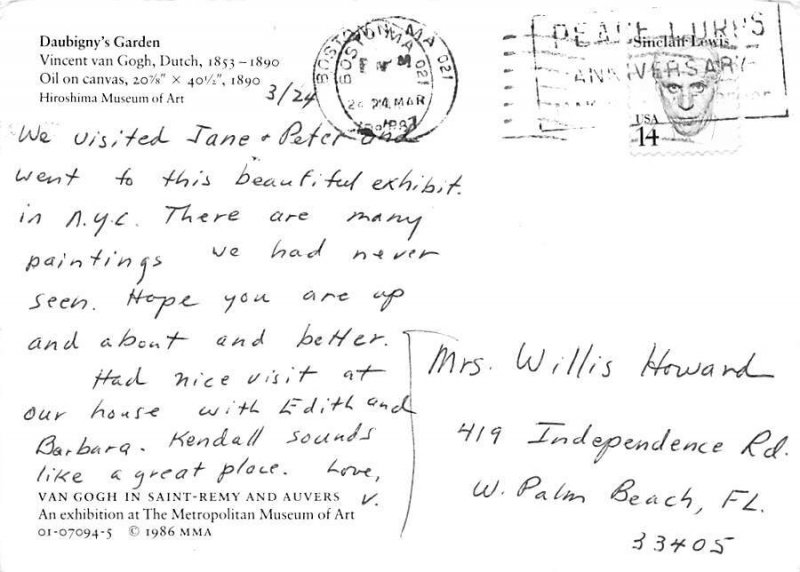 Daubigny's Garden
Vincent van Gogh, Dutch, 1853–1890
Oil on canvas, 20⅞" × 40½", 1890
Hiroshima Museum of Art
3/24
BOSTON MA 021
PM
24 MAR
1987
PEACE CORPS
ANNIVERSARY
Sinclair Lewis
USA
14
We visited Jane + Peter and
went to this beautiful exhibit.
in N.Y.C. There are many
paintings we had never
seen. Hope you are up
and about and better.
Had nice visit at
our house with Edith and
Barbara. Kendall sounds
like a great place. Love,
V.
VAN GOGH IN SAINT-REMY AND AUVERS
An exhibition at The Metropolitan Museum of Art
01-07094-5 © 1986 MMA
Mrs. Willis Howard
419 Independence Rd.
W. Palm Beach, FL.
33405